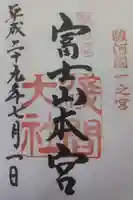 奉拝
駿河國一之宮
富士山本宮
浅間大社
平成二十九年七月一日